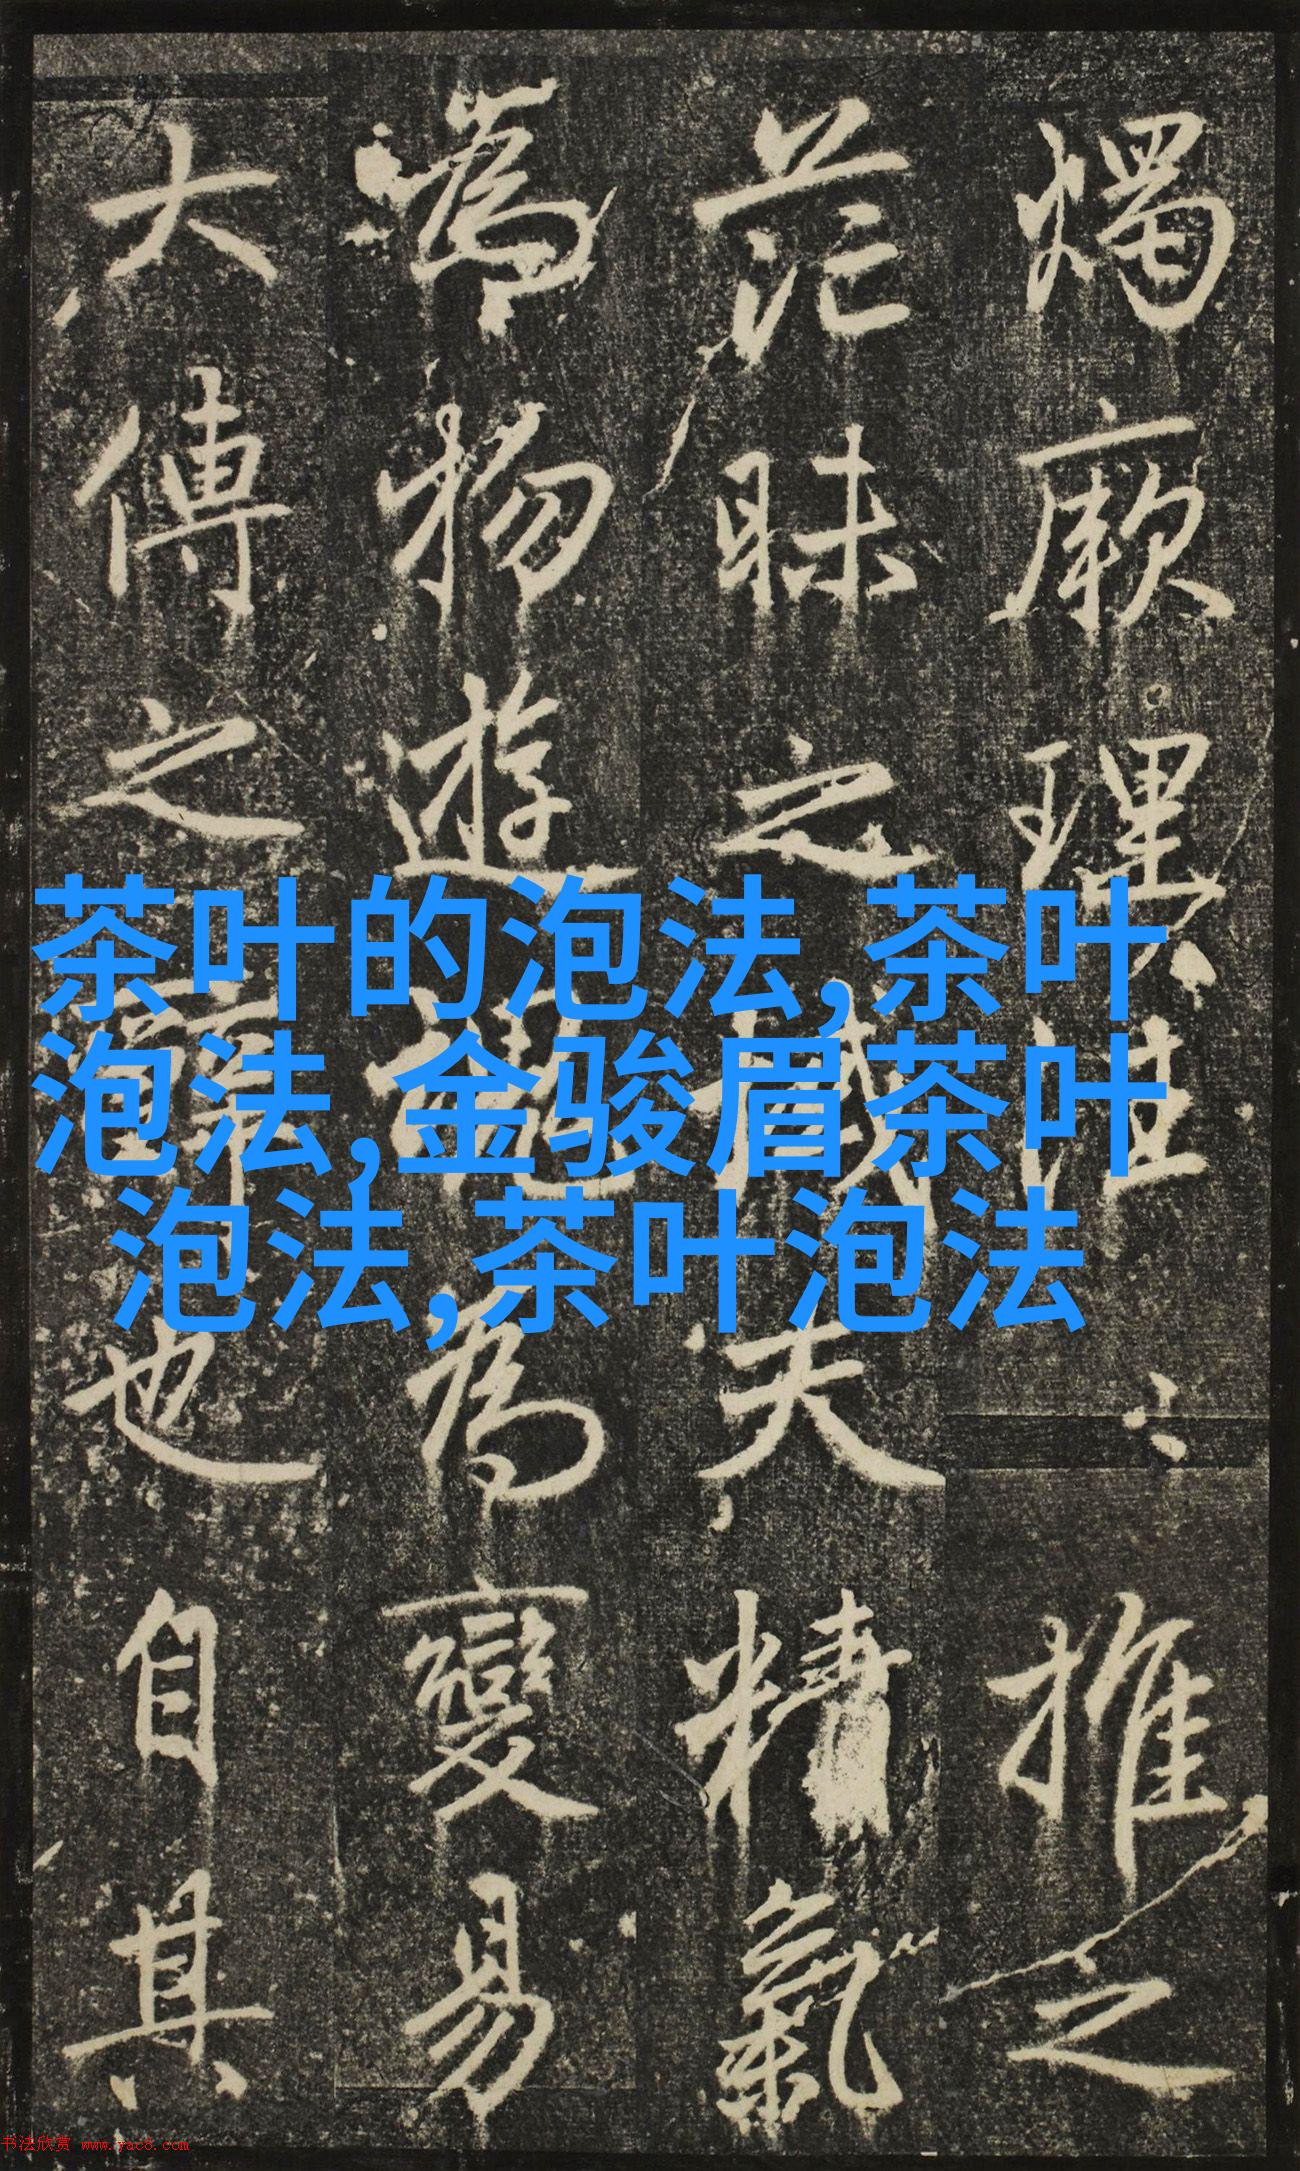 茶叶的泡法,茶叶
泡法,金骏眉茶叶
泡法,茶叶泡法
燭厥理推之
茫昧之域夫精氣
為物遊魂為變易
大傳之辭也自其
书法欣赏 www.yac8.com